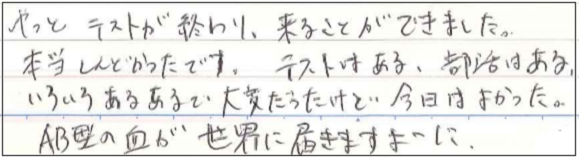 やっと テストが終わり、来ることができました。
本当しんどかったです。 テストはある、部活はある、
いろいろあるあるで大変だったけど、今日はよかった。
AB型の血が世界に届きますよーに.